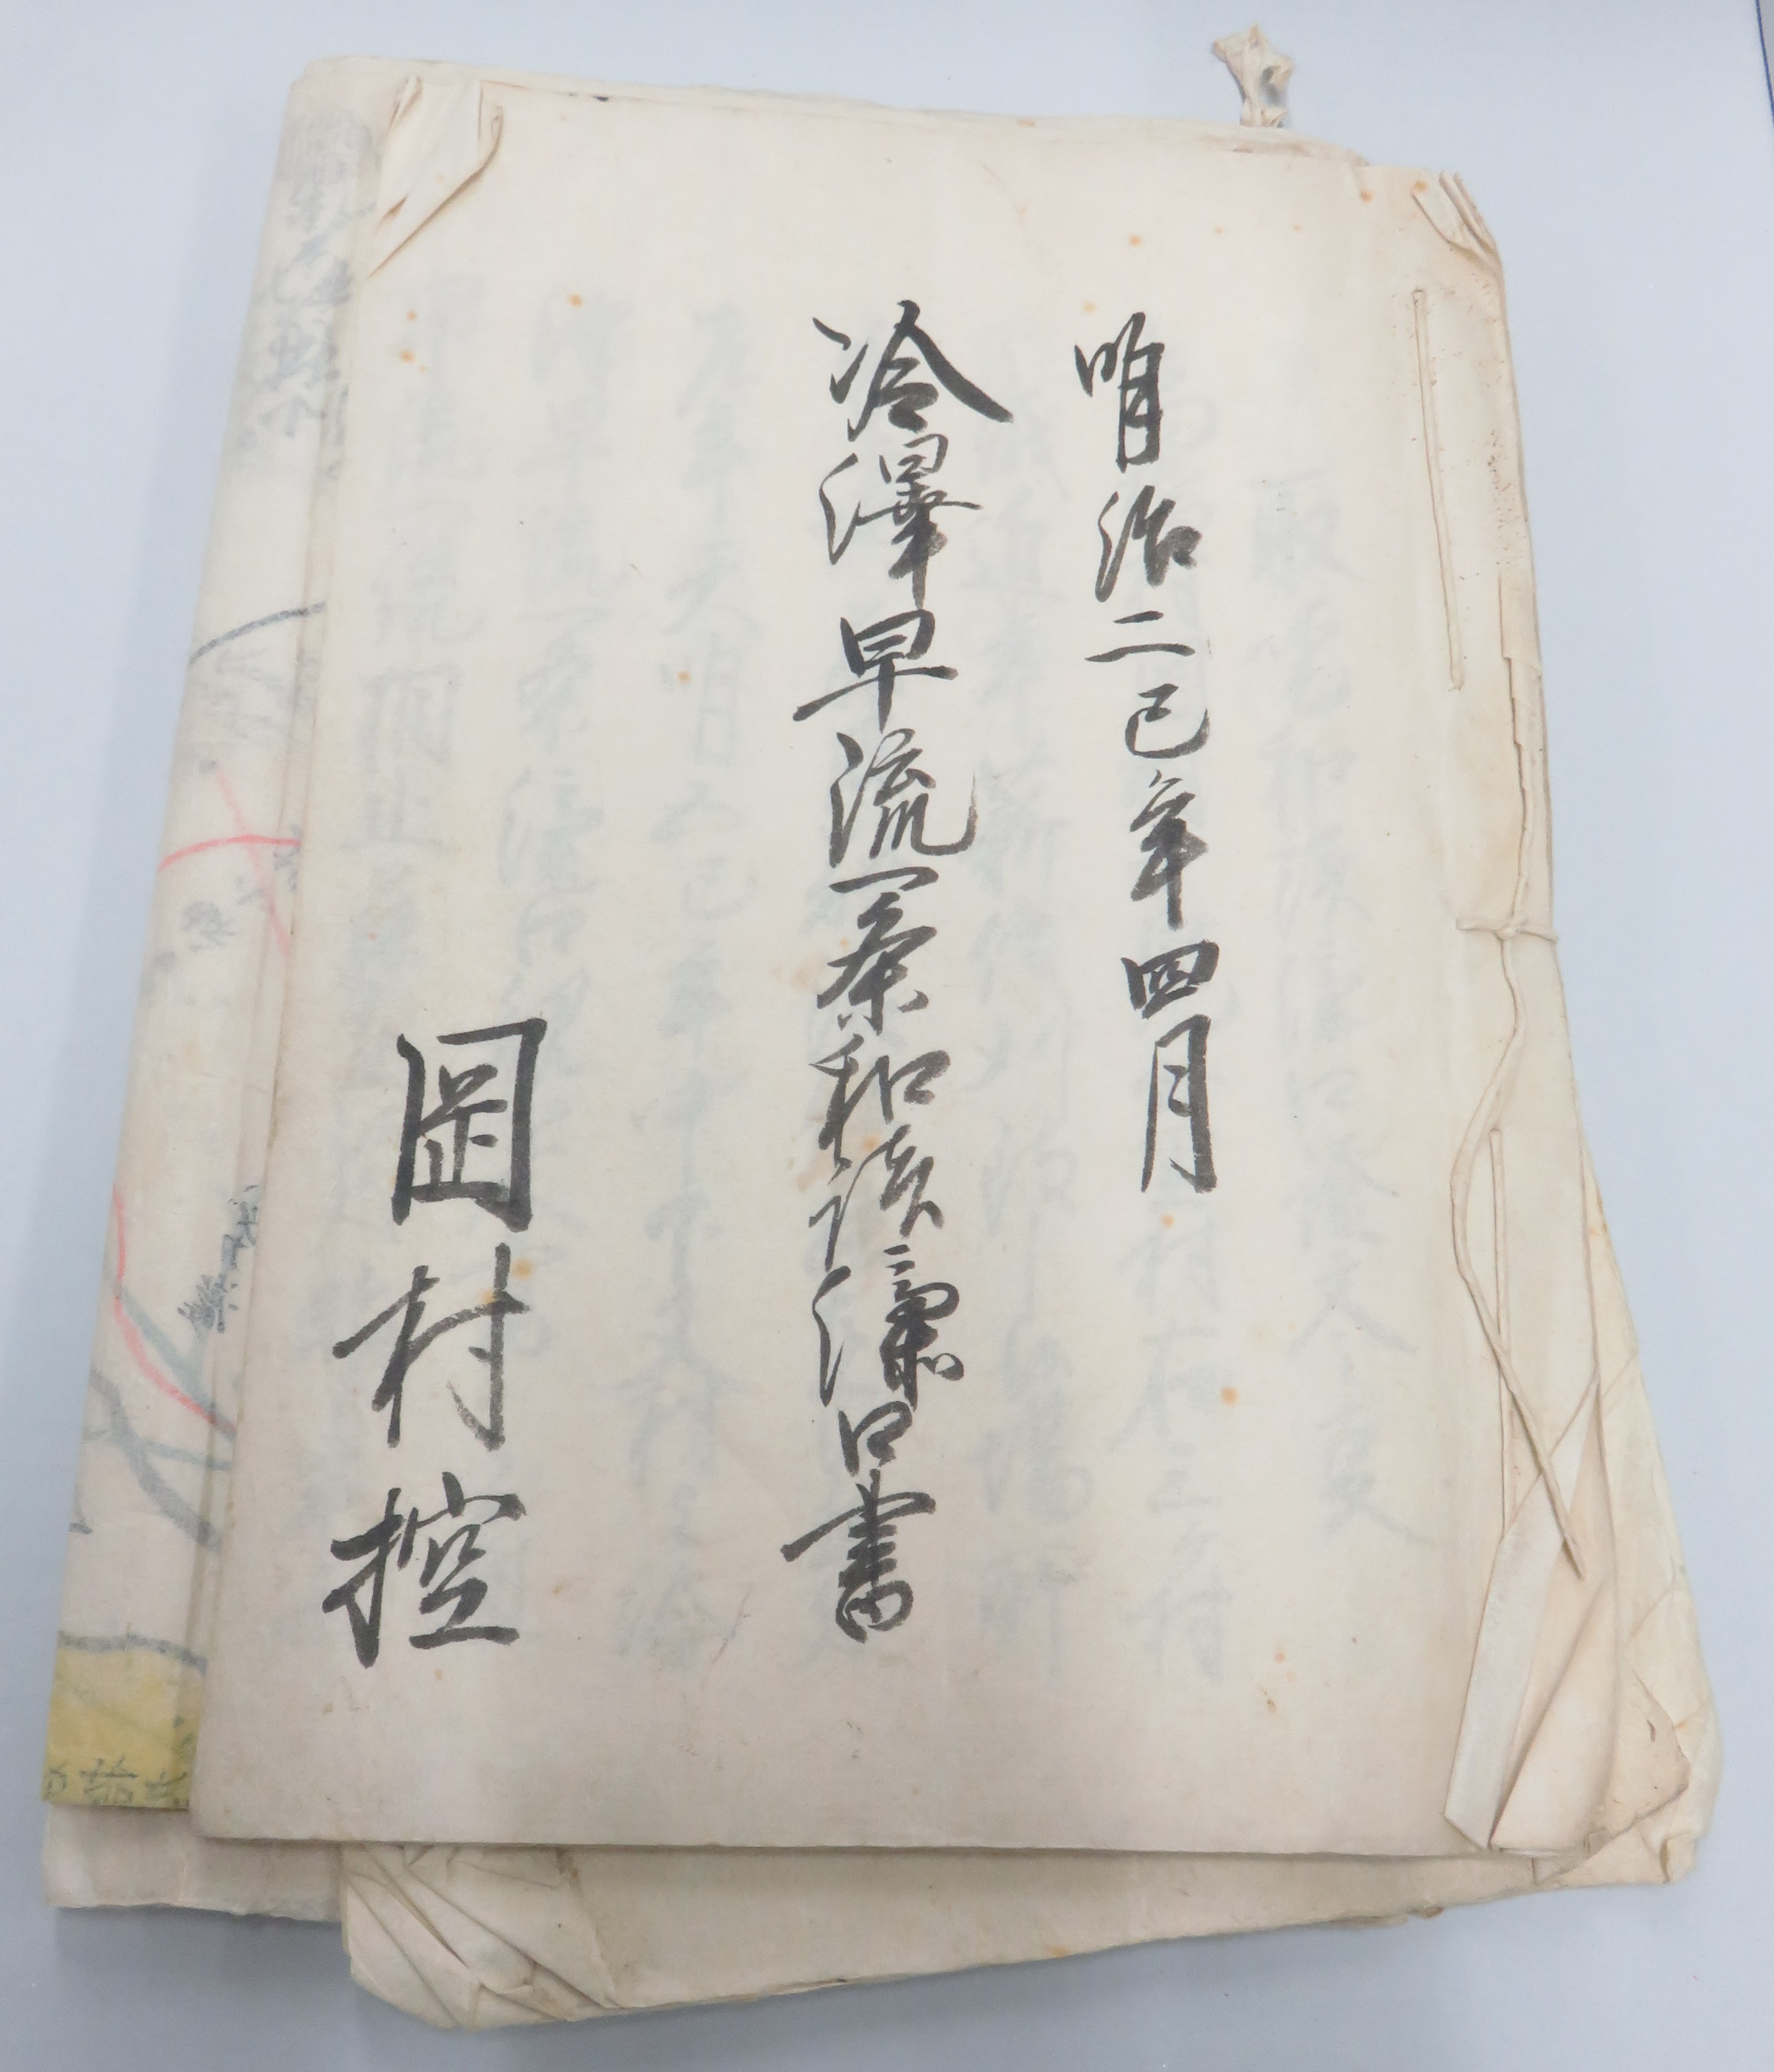 明治二巳年四月
冷澤早流一条和談済口書
岡村控